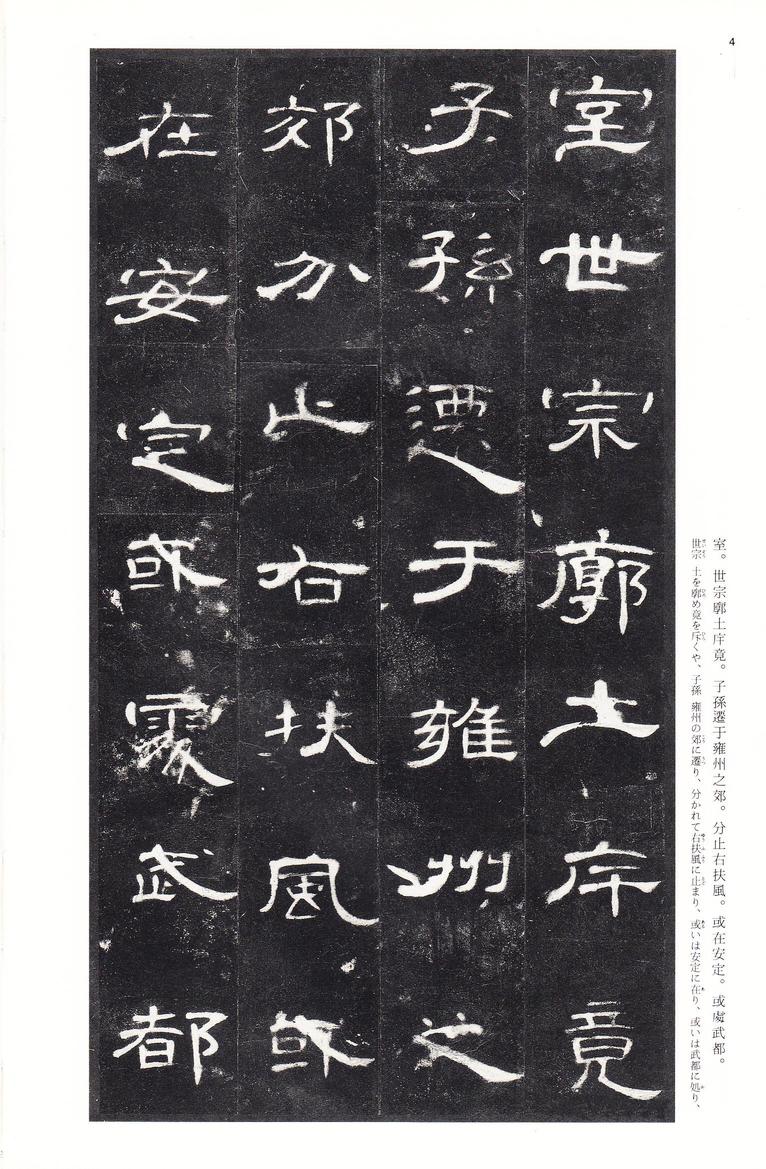 4
室世宗廓土斥竟
子孫遷于雍州之
郊分止右扶風或
在安定或處武都
室。世宗廓土斥竟。子孫遷于雍州之郊。分止右扶風。或在安定。或處武都。
世宗 土を廓め竟を斥くや、子孫 雍州の郊に遷り、分かれて右扶風に止まり、或いは安定に在り、或いは武都に処り、